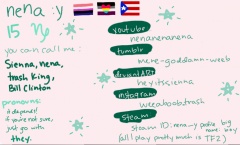 nena :y
15
you can call me:
Sienna, nena,
trash king,
Bill Clinton
pronouns:
it depends!
if you're not sure,
just go with
they.
youtube
nenanenanena
tumblr
mere-goddamn-weeb
deviantART
heyitssienna
instagram
weeaboobtrash
steam
Steam ID: nena_y profile
(all I play pretty much is
TF2)